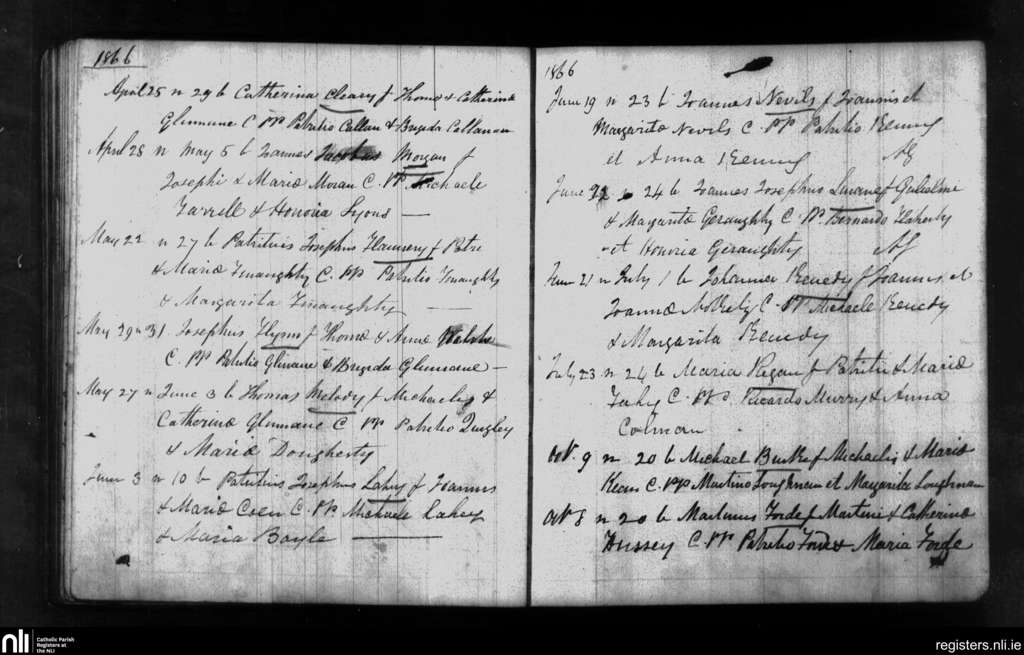 1866
April 25 n 29 b Catherina Cleary f Thoma & Catherina
Glinnane C PP Patritio Callan & Brigida Callanan
April 28 n May 5 b Joannes Morgan f
Josephi & Maria Moran C. PP Michaele
Farrell & Honoria Lyons —
May 22 n 27 b Patritius Josephus Flannery f Petri
& Maria Finaughty C. PP Patritio Finaughty
& Margarita Finaughty —
May 29 n 31 Josephus Flynn f Thoma & Anna Walsh
C. PP Patritio Glinane & Brigida Glinnane —
May 27 n June 3 b Thomas Melody f Michaelis &
Catherina Glinnane C PP Patritio Quigley
& Maria Dougherty
June 3 n 10 b Patritius Josephus Lahey f Joannis
& Maria Coen C. PP Michaele Lahey
& Maria Boyle —
1866
June 19 n 23 b Joannes Nevils f Joannis et
Margarita Nevils C. PP Patritio Kenny
et Anna Kenny
June 22 24 b Joannes Josephus f Gulielmi
& Margarita Geraughty C. PP. Bernardo Flaherty
et Honoria Geraughty
June 21 n July 1 b Johanna Kenedy f Joannis et
Joanna C. PP Michaele Kenedy
& Margarita Kenedy
July 23 n 24 b Maria Regan f Patritii & Maria
Fahy C. PP. Ricardo Murry & Anna
Colman
Oct. 9 n 20 b Michael Burke f Michaelis & Maria
Kean C. PP Martino Loughnan et Margarita Loughnan
Oct 8 n 20 b Martinus Forde f Martini & Catherina
Hussey C PP Patritio Forde & Maria Forde
nli
Catholic Parish
Registers at
the NLI
registers.nli.ie